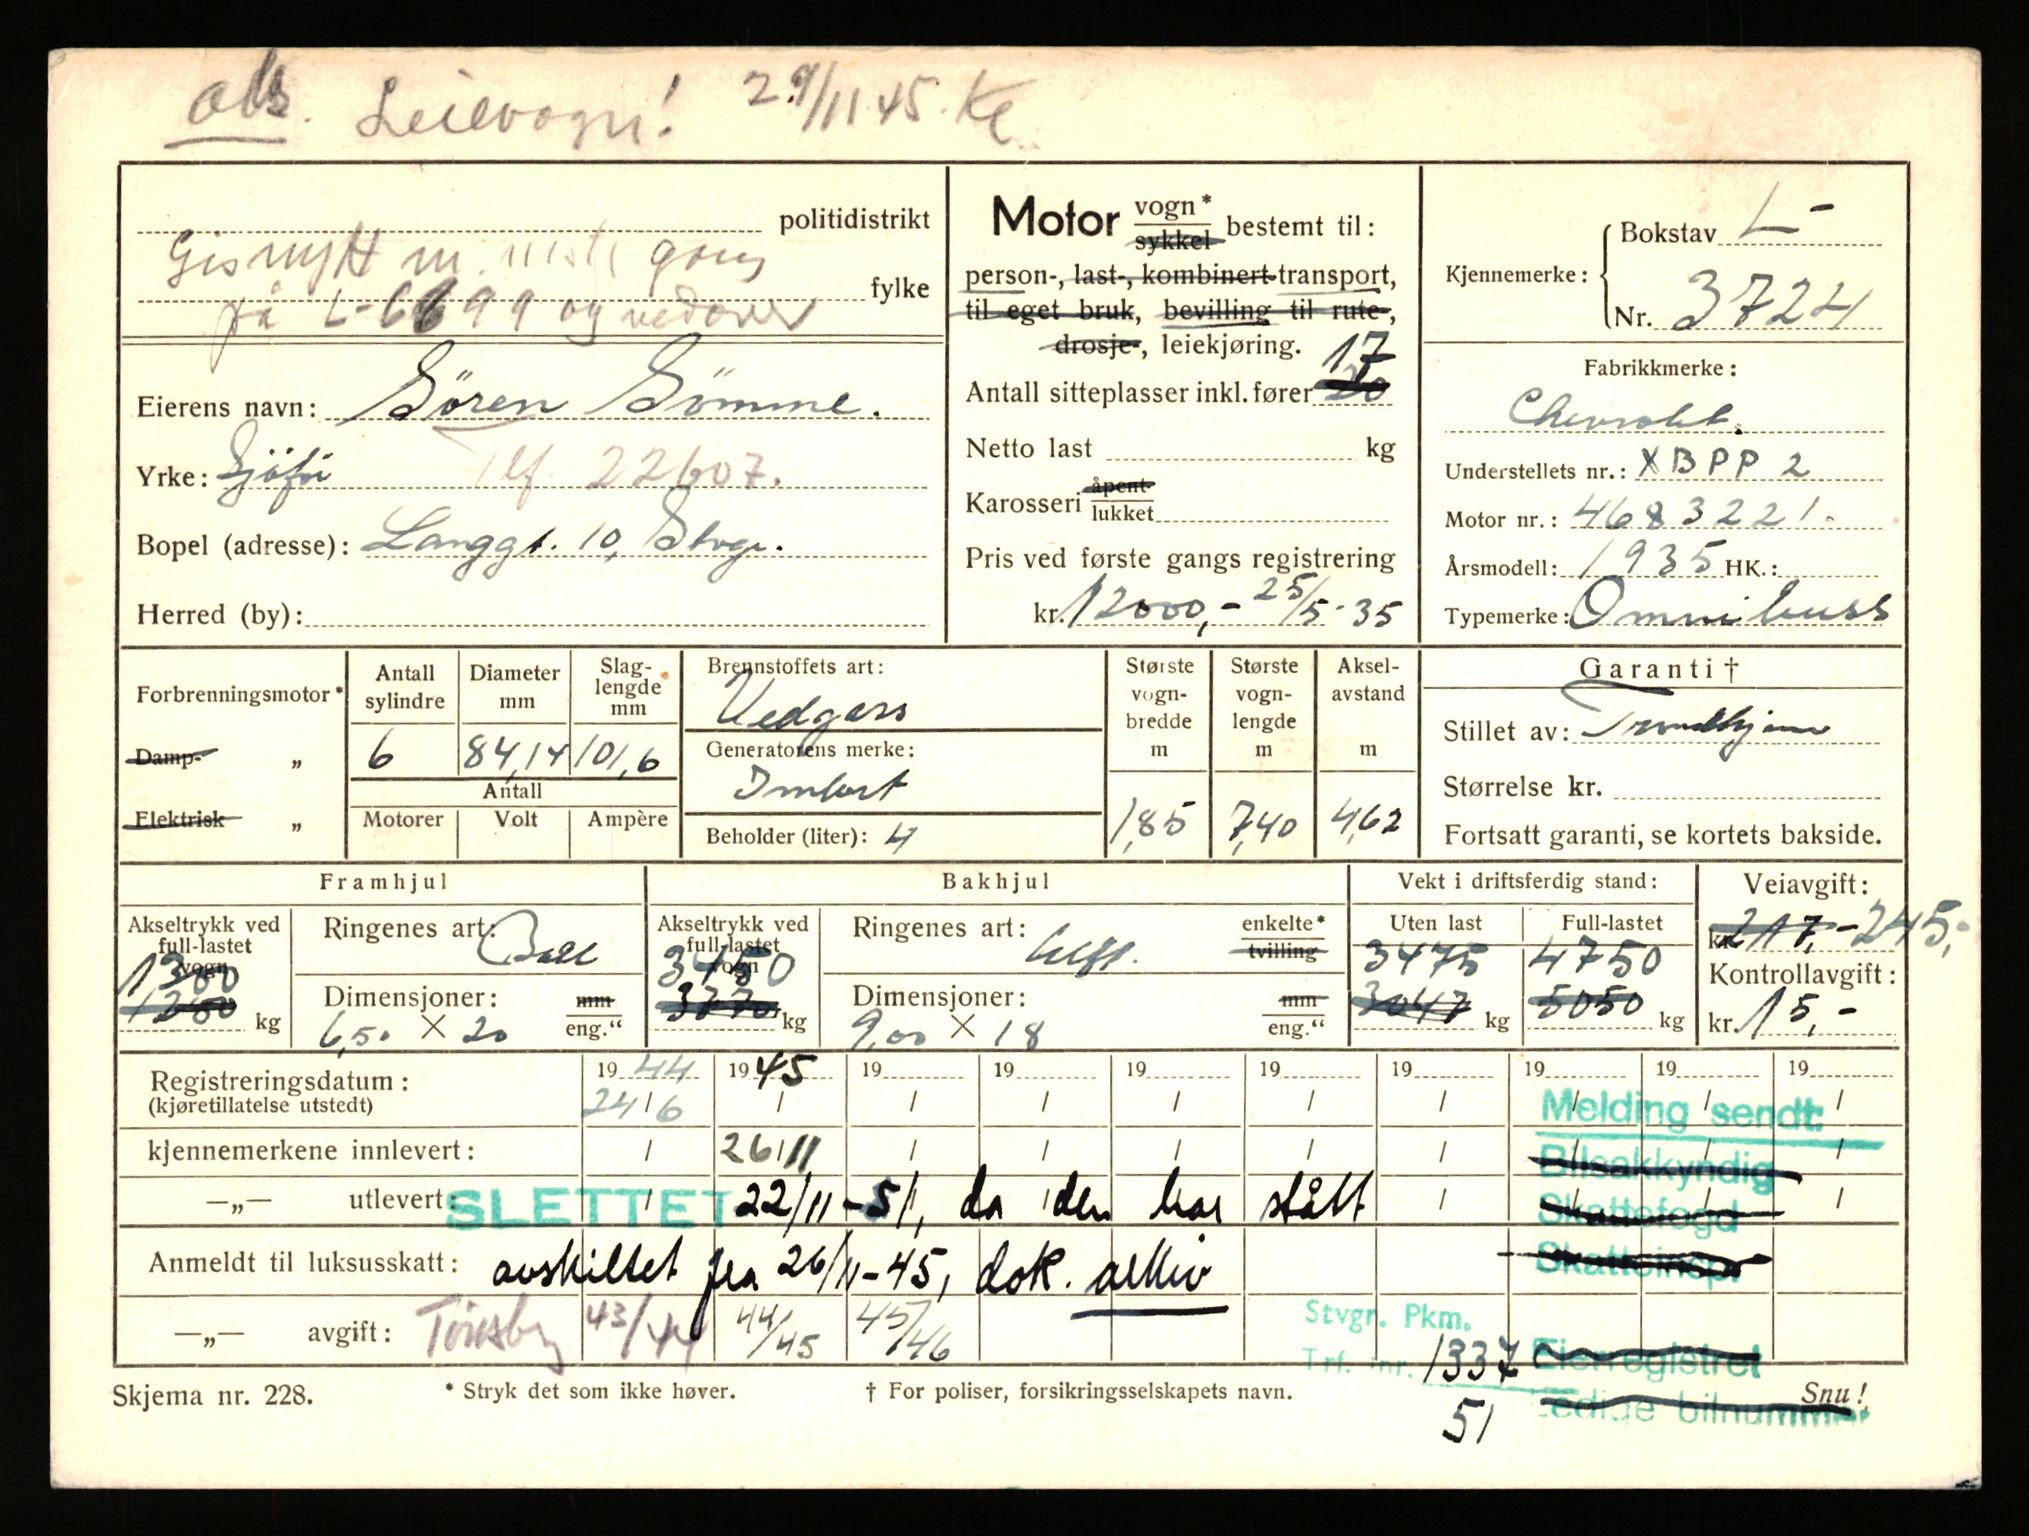 obs. Leievogn! 29/11 45. Ke
politidistrikt
Gis nytt m. gang
fylke
på L-6699 og vedover
Eierens navn: Sören Sömme.
Yrke: Sjåfør Tlf. 22607.
Bopel (adresse): Langgt. 10, Stvgr.
Herred (by):
Motor vogn* sykkel bestemt til:
person-, last-, kombinert-transport,
til eget bruk, bevilling til rute-,
drosje-, leiekjøring.
17
Antall sitteplasser inkl. fører 20
Netto last kg
Karosseri åpent lukket
Pris ved første gangs registrering
kr. 12000,- 25/5-35
Kjennemerke: Bokstav L-
Nr. 3724
Fabrikkmerke:
Chevrolet.
Understellets nr.: XBPP2
Motor nr.: 4683221.
Årsmodell: 1935 HK.:
Typemerke: Omnibuss
Forbrenningsmotor*
Damp- „
Elektrisk „
Antall sylindre 6
Diameter mm 84,14
Slaglengde mm 101,6
Antall
Motorer Volt Ampère
Brennstoffets art:
Vedgass
Generatorens merke:
Imbert
Beholder (liter): 4
Største vognbredde m 1,85
Største vognlengde m 7,40
Akselavstand m 4,62
Garanti †
Stillet av: Trondhjem
Størrelse kr.
Fortsatt garanti, se kortets bakside.
Framhjul
Akseltrykk ved full-lastet vogn
1300
1280 kg
Ringenes art: Ball
Dimensjoner: mm
6,50 × 20 eng.“
Bakhjul
Akseltrykk ved full-lastet vogn
3450
3770 kg
Ringenes art: luft. enkelte* tvilling
Dimensjoner: mm
9,00 × 18 eng.“
Vekt i driftsferdig stand:
Uten last Full-lastet
3475 4750
3047 kg 5050 kg
Veiavgift:
kr. 217,- 245,-
Kontrollavgift:
kr. 15,-
Registreringsdatum: 19 44 19 45 19 19 19 19 19 19 19 19
(kjøretillatelse utstedt) 24/6 / / / / / / / / /
Melding sendt:
kjennemerkene innlevert: / 26/11 / / / / / / / /
Bilsakkyndig
—„— utlevert: SLETTET 22/11-51, da den har stått
Skattefogd
Anmeldt til luksusskatt: avskiltet fra 26/11-45, dok. arkiv
Skatteinsp.
—„— avgift: Tönsberg 43/44 44/45 45/46
Stvgr. Pkm.
Trf. inr. 1337
51
Eierregistret
Ledige bilnummer
Skjema nr. 228. * Stryk det som ikke høver. † For poliser, forsikringsselskapets navn. Snu!